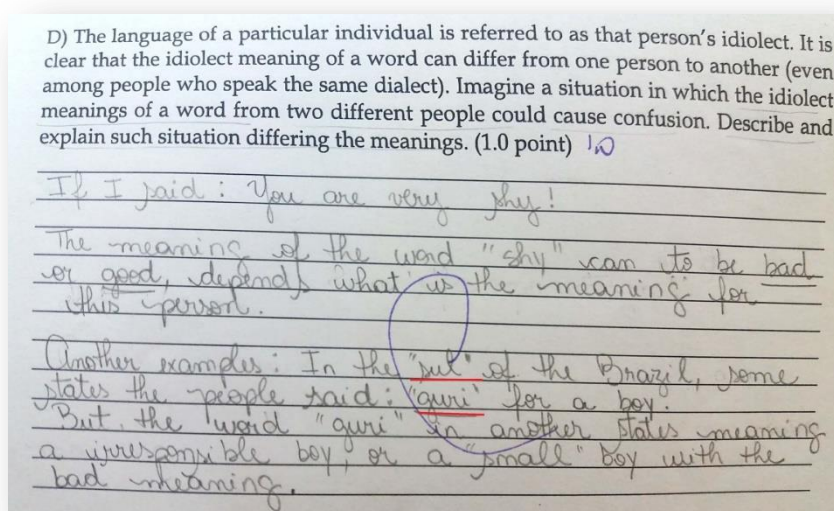 D) The language of a particular individual is referred to as that person's idiolect. It is
clear that the idiolect meaning of a word can differ from one person to another (even
among people who speak the same dialect). Imagine a situation in which the idiolect
meanings of a word from two different people could cause confusion. Describe and
explain such situation differing the meanings. (1.0 point) 1,0
If I said: You are very shy!
The meaning of the word "shy" can to be bad
or good, depends what is the meaning for
this person.
Another examples: In the "sul" of the Brazil, some
states the people said: "guri" for a boy.
But, the word "guri" in another states meaning
a irresponsible boy, or a "small" boy with the
bad meaning.